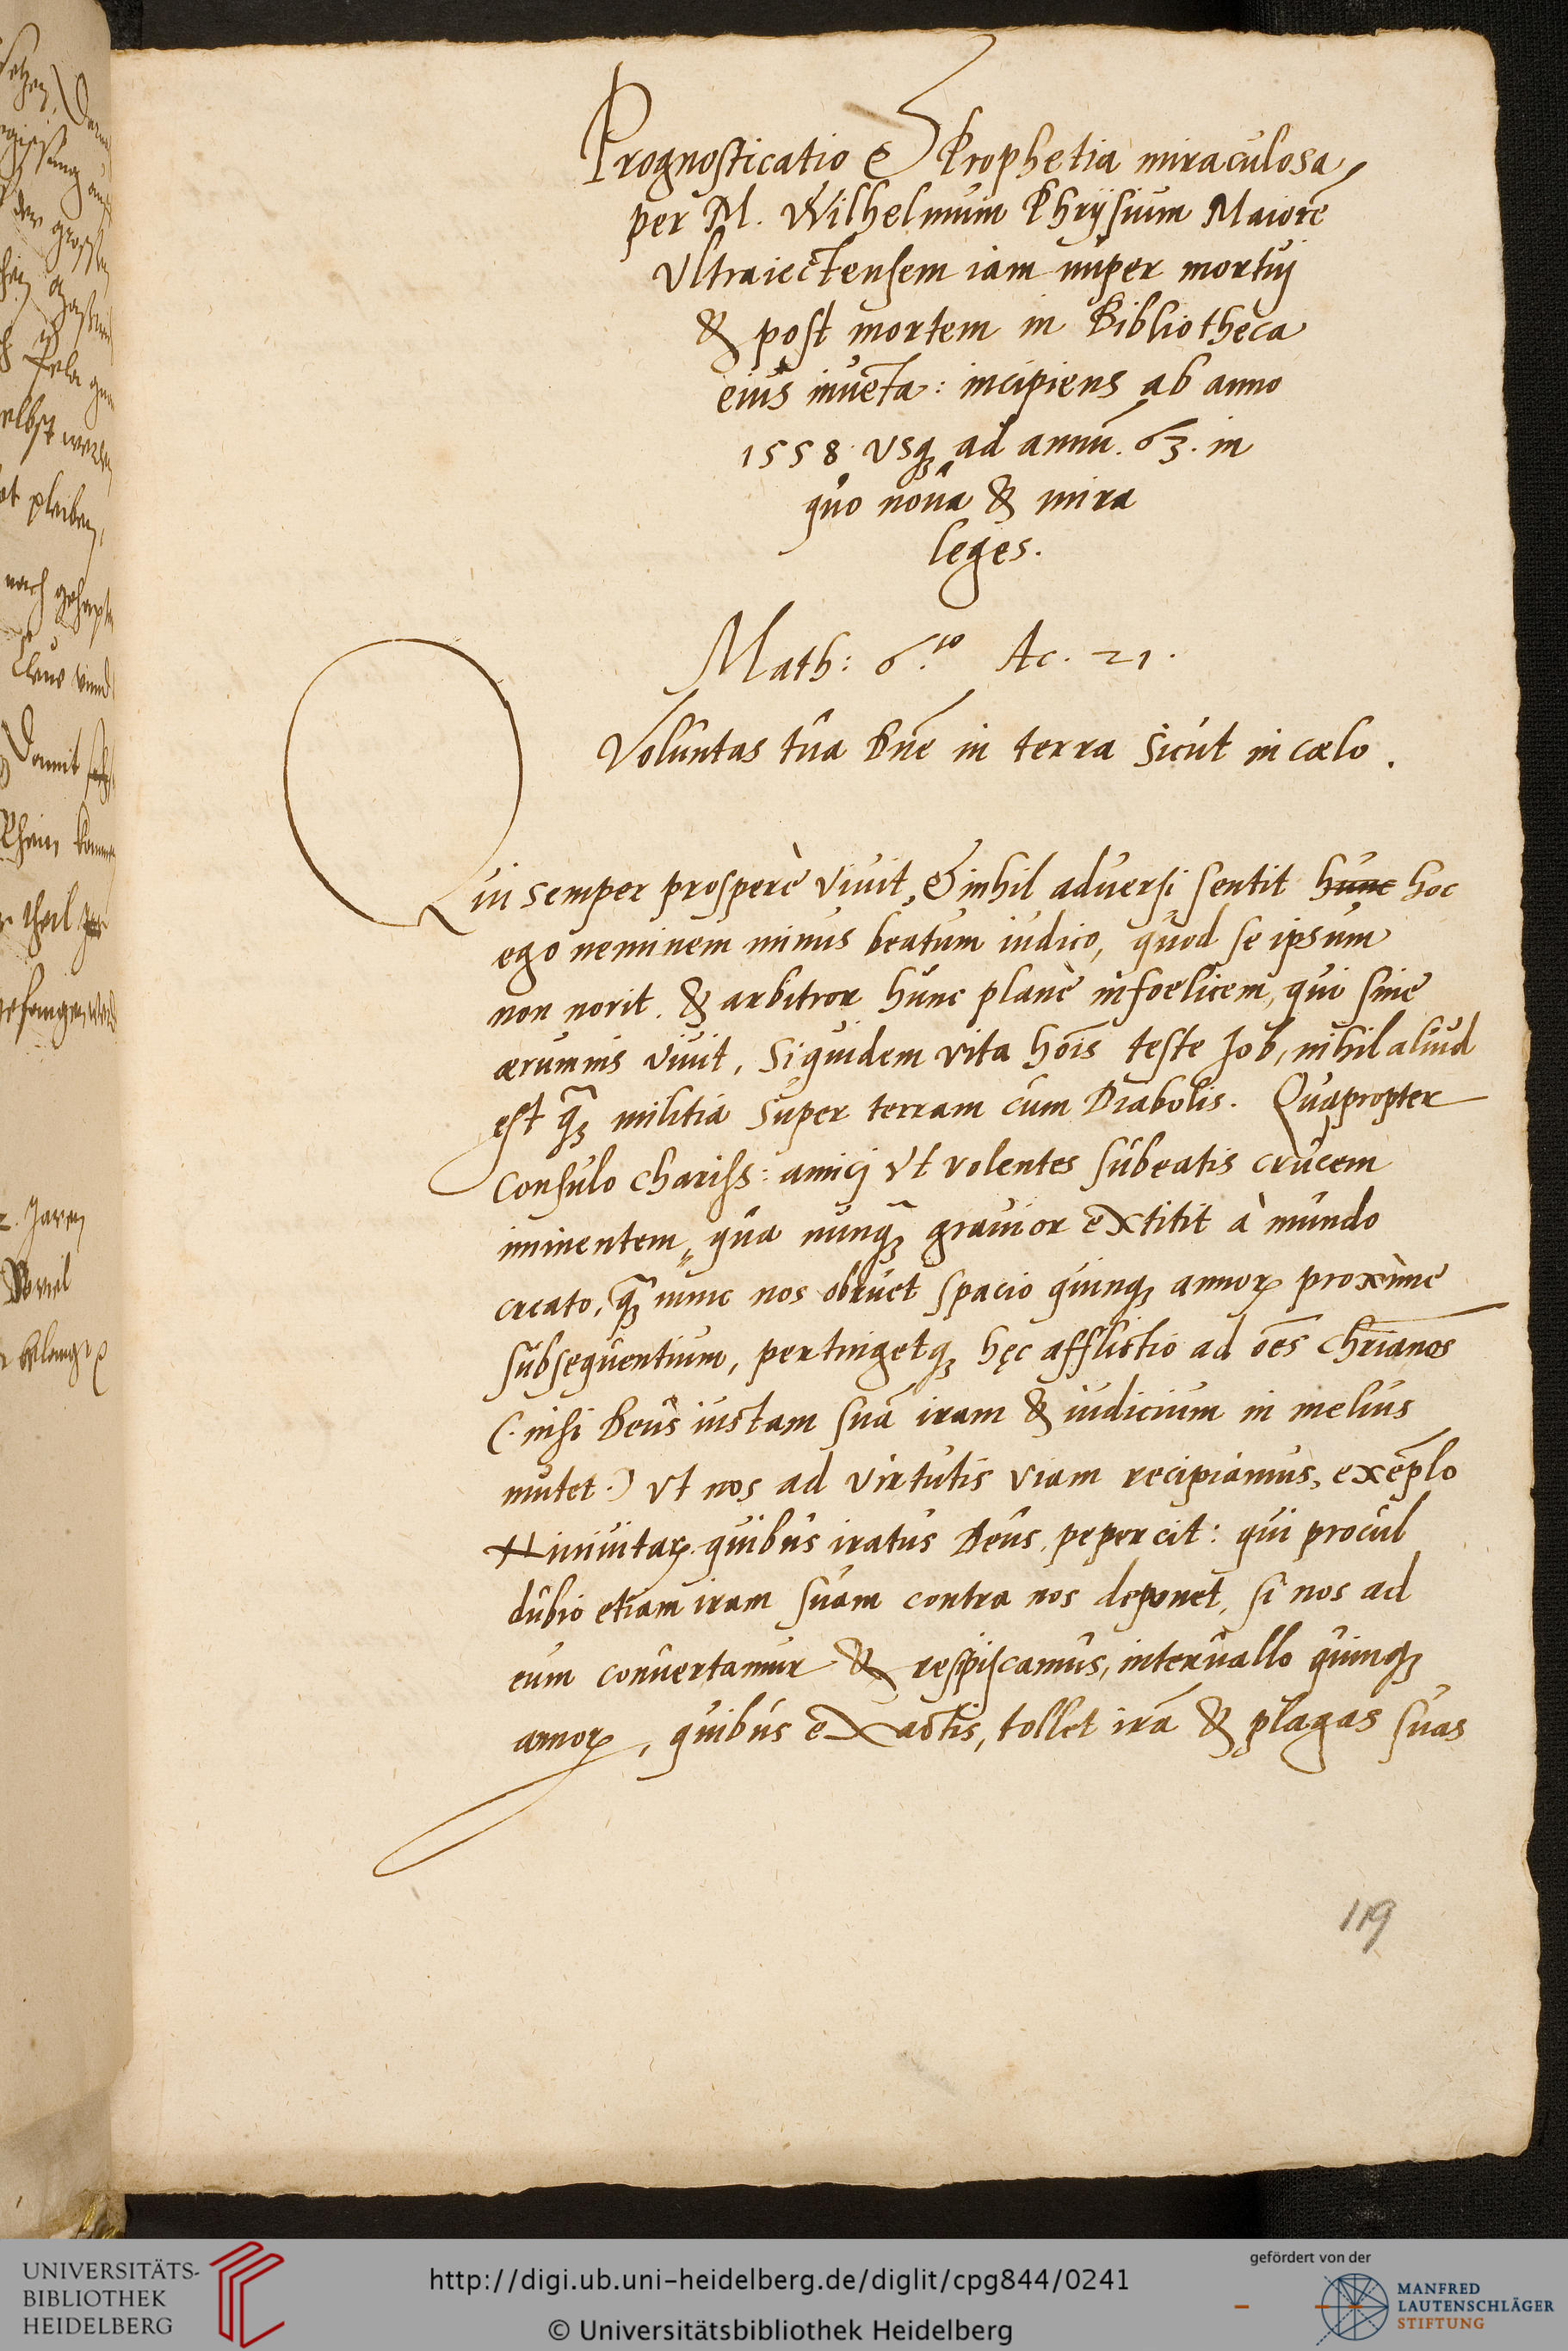 Prognosticatio & Prophetia miraculosa
per M. Wilhelmum Phrysium Maiorē
Vltraiectensem iam nuper mortuj
& post mortem in Bibliotheca
eius inuēta: incipiens ab anno
1558. vsq̨ ad annū. 63. in
quo noua & mira
leges.
Math: 6.to Ac. 21.
Voluntas tua Dn̄e in terra sicut in cælo.
Qui semper prosperè viuit, & nihil aduersi sentit hunc hoc
ego neminem minus beatum iudico, quod se ipsum
non norit. & arbitror hunc planè infoelicem, qui sine
ærumnis viuit, Siquidem vita hōis teste Job, nihil aliud
est q̃ȝ militia super terram cum Diabolis. Quapropter
consulo chariss: amicj vt volentes subeatis crucem
iminentem, qua nunq̃ȝ grauior extitit à mundo
creato, q̃ȝ nunc nos obruet spacio quinqȝ annoꝝ proximè
subsequentium, pertingetqȝ hęc afflictio ad oēs chr̄ianos
(. nisi Deus iustam suā iram & iudicium in melius
mutet.) vt nos ad virtutis viam recipiamus, exēplo
Niniuitaꝝ. quibus iratus Deus, pepercit: qui procul
dubio etiam iram suam contra nos deponet, si nos ad
eum conuertamur & respiscamus, interuallo quinqȝ
annoꝝ, quibus exactis, tollet irā & plagas suas
119
UNIVERSITÄTS-
BIBLIOTHEK
HEIDELBERG
http://digi.ub.uni-heidelberg.de/diglit/cpg844/0241
© Universitätsbibliothek Heidelberg
gefördert von der
MANFRED
LAUTENSCHLÄGER
STIFTUNG